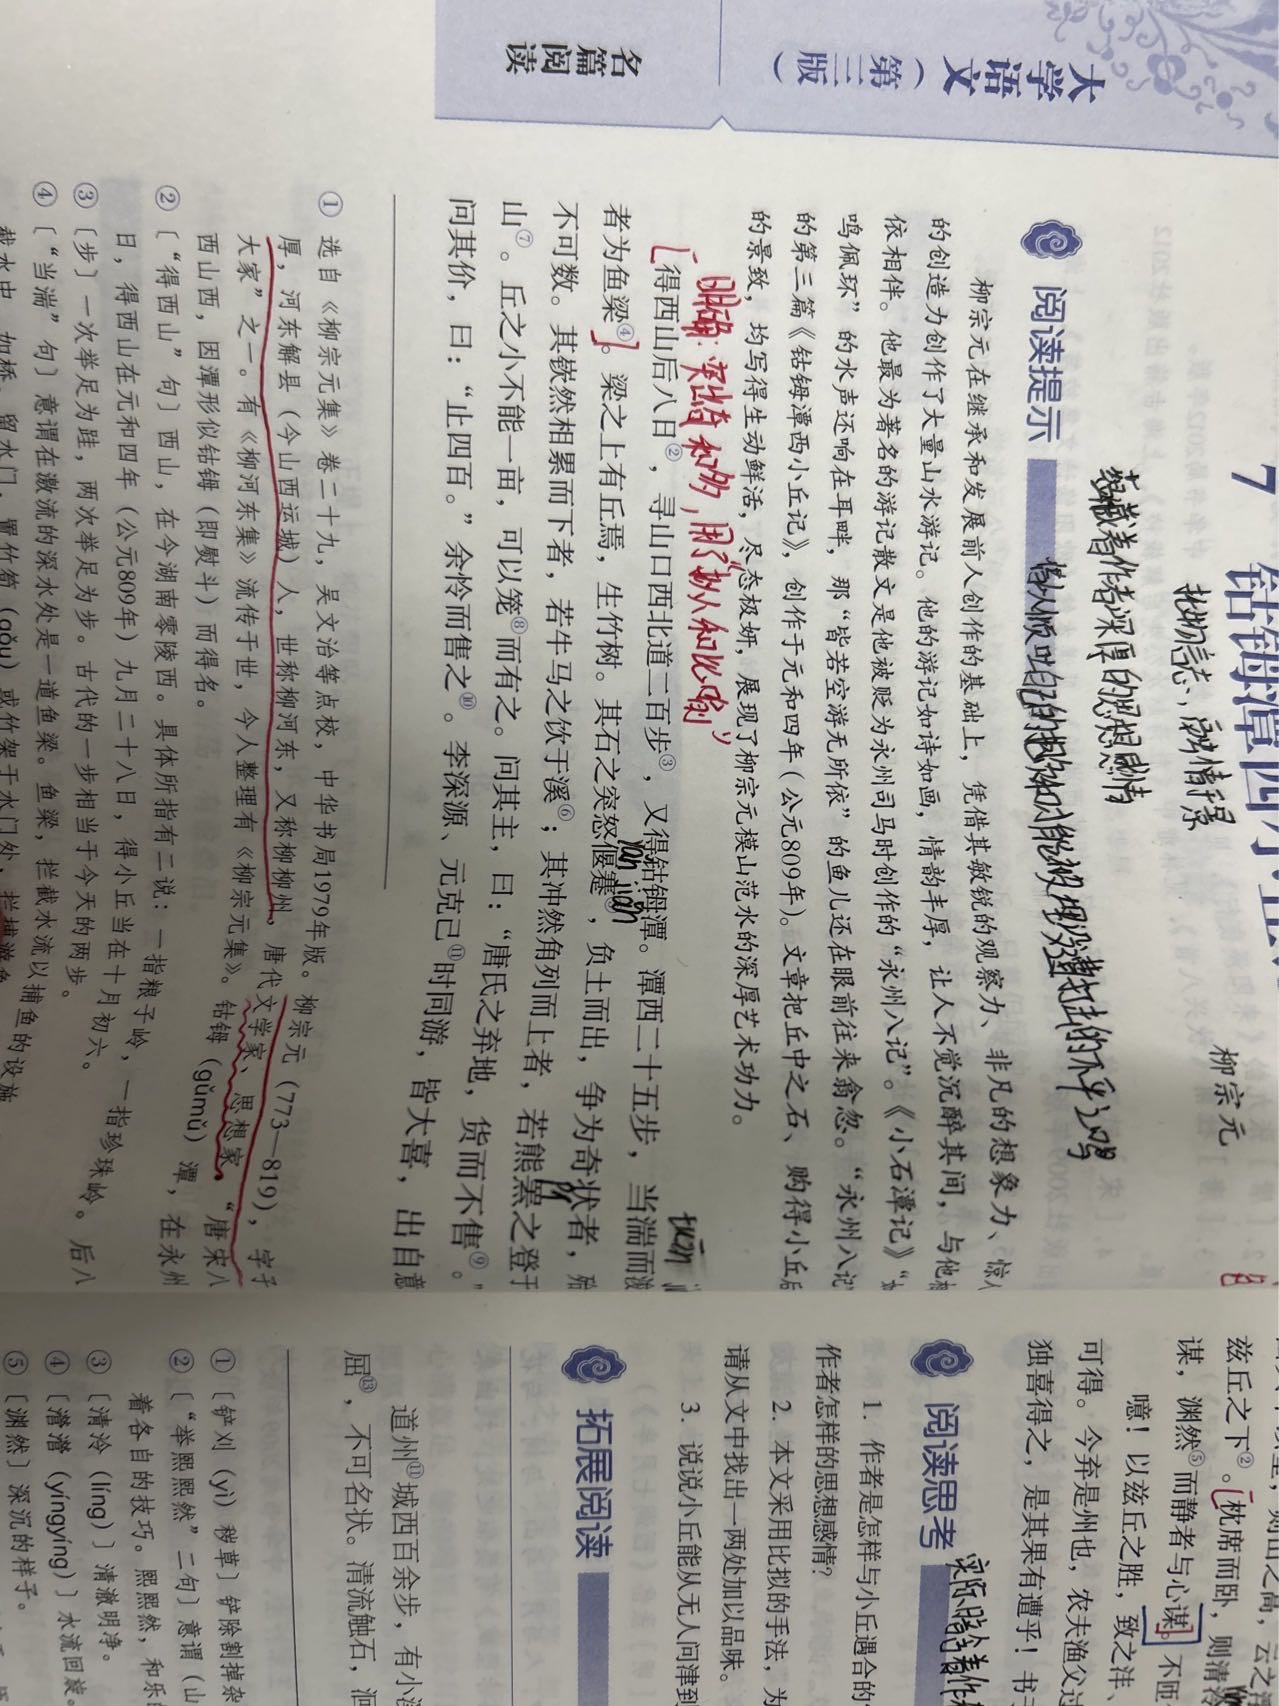 大学语文（第三版）
名篇阅读
7 钴鉧潭西小丘
柳宗元
托物言志、寓情于景
蕴藏着作者深厚的思想感情
阅读提示
柳宗元在继承和发展前人创作的基础上，凭借其敏锐的观察力、非凡的想象力、惊人
的创造力创作了大量山水游记。他的游记如诗如画，情韵丰厚，让人不觉沉醉其间，与他相
依相伴。他最为著名的游记散文是他被贬为永州司马时创作的“永州八记”。《小石潭记》“如
鸣佩环”的水声还响在耳畔，那“皆若空游无所依”的鱼儿还在眼前往来翕忽。“永州八记”
的第三篇《钴鉧潭西小丘记》，创作于元和四年（公元809年）。文章把丘中之石、购得小丘后
的景致，均写得生动鲜活，尽态极妍，展现了柳宗元模山范水的深厚艺术功力。
明确：突出奇和多，用了拟人和比喻
得西山后八日②，寻山口西北道二百步③，又得钴鉧潭。潭西二十五步，当湍而浚
tuān
者为鱼梁④。梁之上有丘焉，生竹树。其石之突怒偃蹇，负土而出，争为奇状者，殆
yǎn jiǎn
不可数。其嵚然相累而下者，若牛马之饮于溪⑥；其冲然角列而上者，若熊罴之登于
pí
山⑦。丘之小不能一亩，可以笼⑧而有之。问其主，曰：“唐氏之弃地，货而不售⑨。”
问其价，曰：“止四百。”余怜而售之⑩。李深源、元克己⑪时同游，皆大喜，出自意
① 选自《柳宗元集》卷二十九，吴文治等点校，中华书局1979年版。柳宗元（773—819），字子
厚，河东解县（今山西运城）人，世称柳河东，又称柳柳州，唐代文学家、思想家，“唐宋八
大家”之一。有《柳河东集》流传于世，今人整理有《柳宗元集》。钴鉧（gǔmǔ）潭，在永州
西山西，因潭形似钴鉧（即熨斗）而得名。
② 〔“得西山”句〕西山，在今湖南零陵西。具体所指有二说：一指粮子岭，一指珍珠岭。后八
日，得西山在元和四年（公元809年）九月二十八日，得小丘当在十月初六。
③ 〔步〕一次举足为跬，两次举足为步。古代的一步相当于今天的两步。
④ 〔“当湍”句〕意谓在激流的深水处是一道鱼梁。鱼梁，拦截水流以捕鱼的设施
截水中，如桥，留水门，置竹笱（gǒu）或竹架于水门外，拦捕游鱼
兹丘之下②。枕席而卧，则清泠
谋，渊然⑤而静者与心谋。不匝
噫！以兹丘之胜，致之沣、
可得。今弃是州也，农夫渔父过
独喜得之，是其果有遭乎！书于
阅读思考
1. 作者是怎样与小丘遇合的
作者怎样的思想感情？
2. 本文采用比拟的手法，为
请从文中找出一两处加以品味。
3. 说说小丘能从无人问津到
拓展阅读
道州⑪城西百余步，有小溪
屈⑬，不可名状。清流触石，洄
① 〔铲刈（yì）秽草〕铲除割掉杂
② 〔“举熙熙然”二句〕意谓（山
着各自的技巧。熙熙然，和乐的
③ 〔清泠（líng）〕清澈明净。
④ 〔瀯瀯（yíngyíng）〕水流回旋。
⑤ 〔渊然〕深沉的样子。